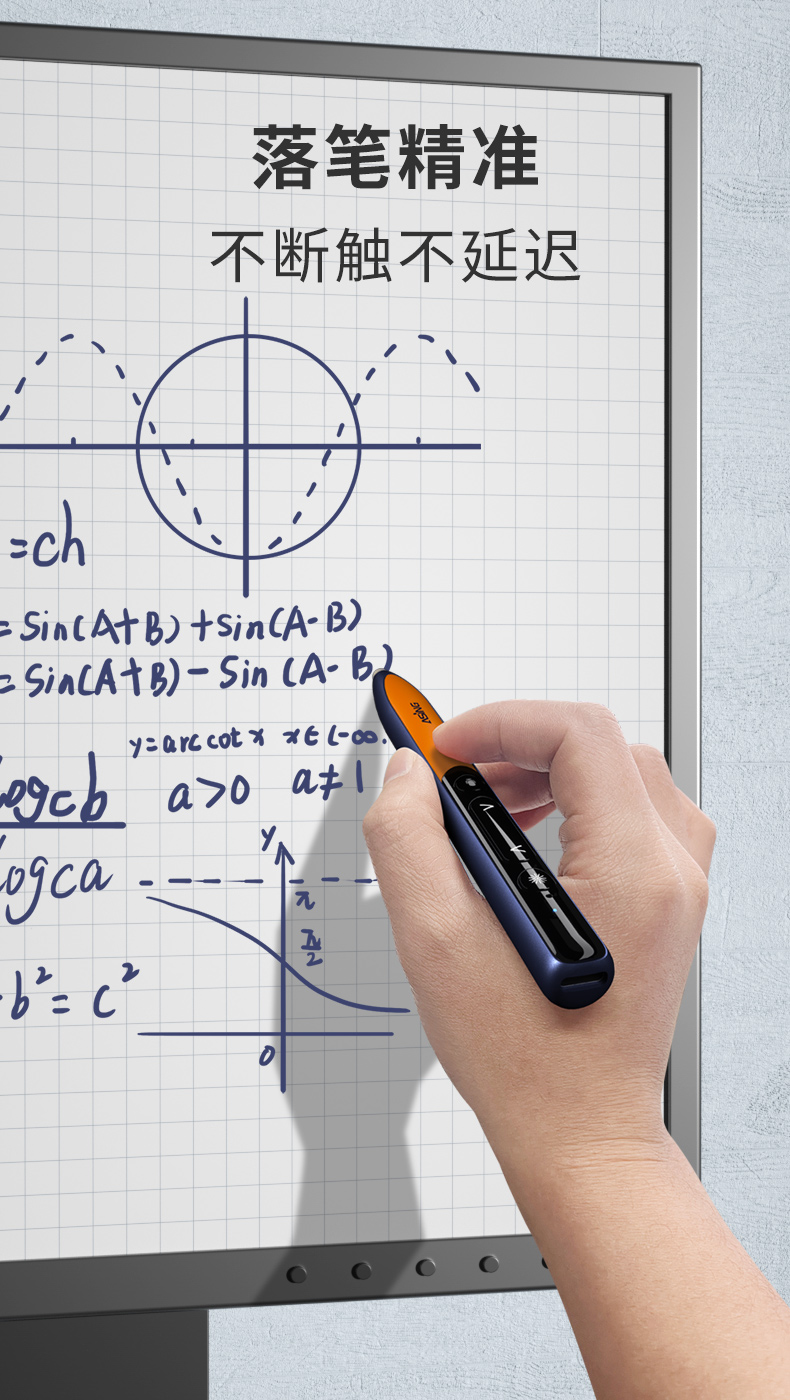 落笔精准
不断触不延迟
=ch
= Sin(A+B) +Sin(A-B)
= Sin(A+B) - Sin (A-B)
y=arc cot x x∈(-∞.
logcb
a>0 a≠1
logca
y
π
π
2
b²= c²
0
ASiNG